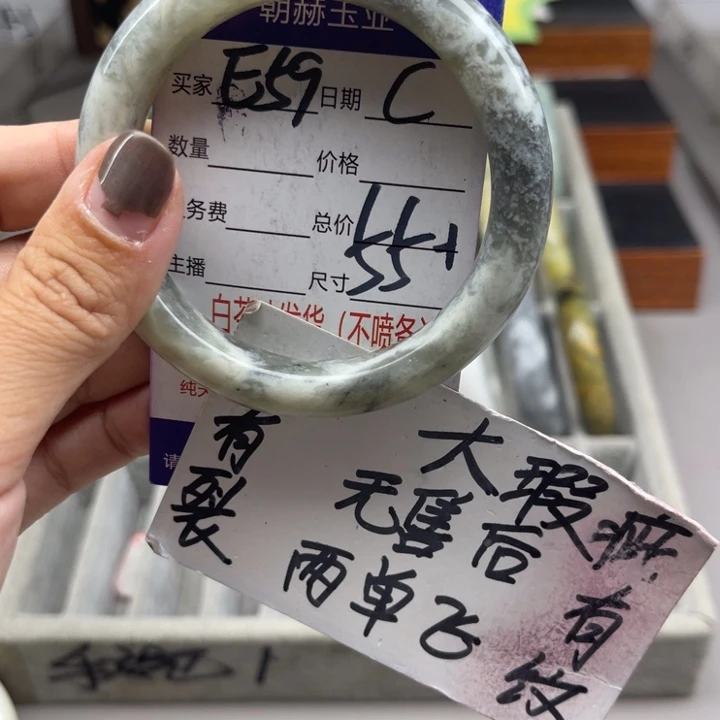 朝赫玉业
买家 E59 日期 C
数量 价格
务费 总价 55+
主播 尺寸 55
白菜 发货(不喷备)
纯天
请
有裂
大瑕疵有纹
无售后
两单飞